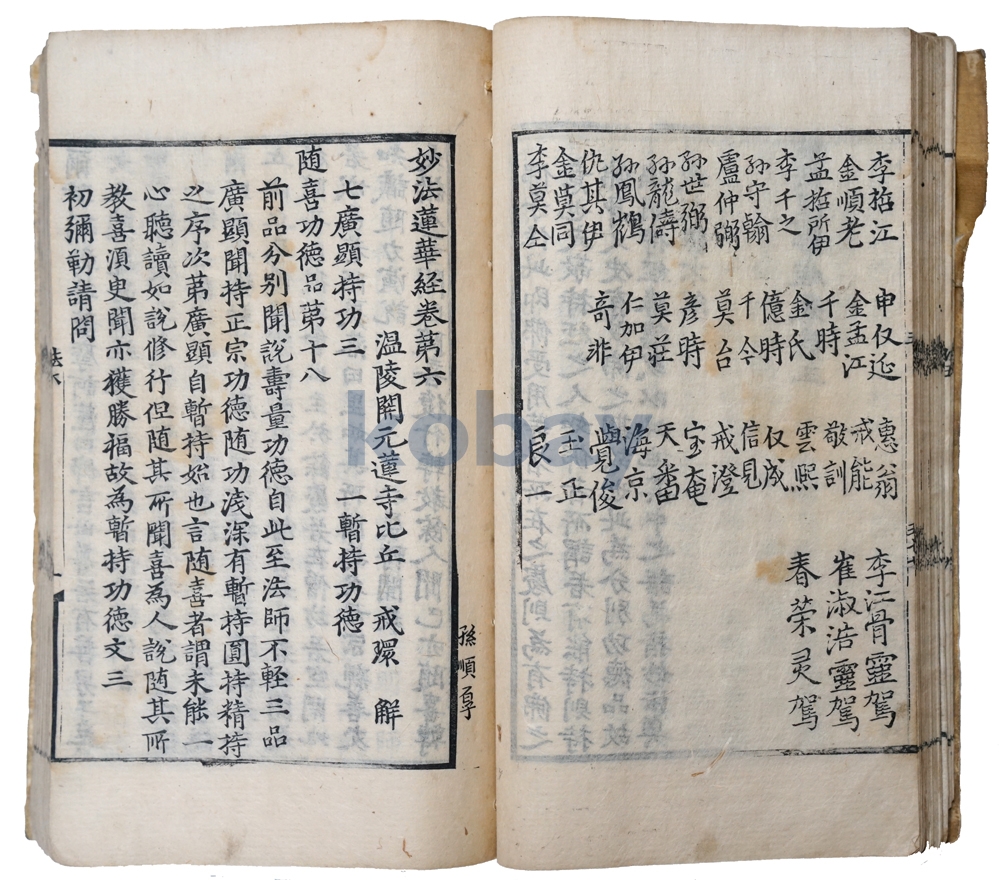 李招江　申仅延　惠翁　李江骨靈駕
金順老　金孟江　戒能　崔淑浩靈駕
孟招所伊　千時　敬訓　春荣灵駕
李千之　金氏　雲熈
孫守翰　億時　仅成
盧仲弼　千今　信見
孫世弼　莫台　戒澄
孫龍儔　彦時　宝庵
孫鳳鶴　莫庄　天畨
仇其伊　仁加伊　海京
金莫同　竒非　覺俊
李莫仝　玉正
良一
妙法蓮華經卷第六
温陵開元蓮寺比丘　戒環　解
七廣顯持功三　一暫持功德
随喜功德品第十八
前品分别聞說壽量功德自此至法師不輕三品
廣顯聞持正宗功德随功淺深有暫持圓持精持
之序次第廣顯自暫持始也言随喜者謂未能一
心聽讀如說修行但随其所聞喜為人說随其所
教喜湏史聞亦獲勝福故為暫持功德文三
初彌勒請問
孫順孠
法六
kobay